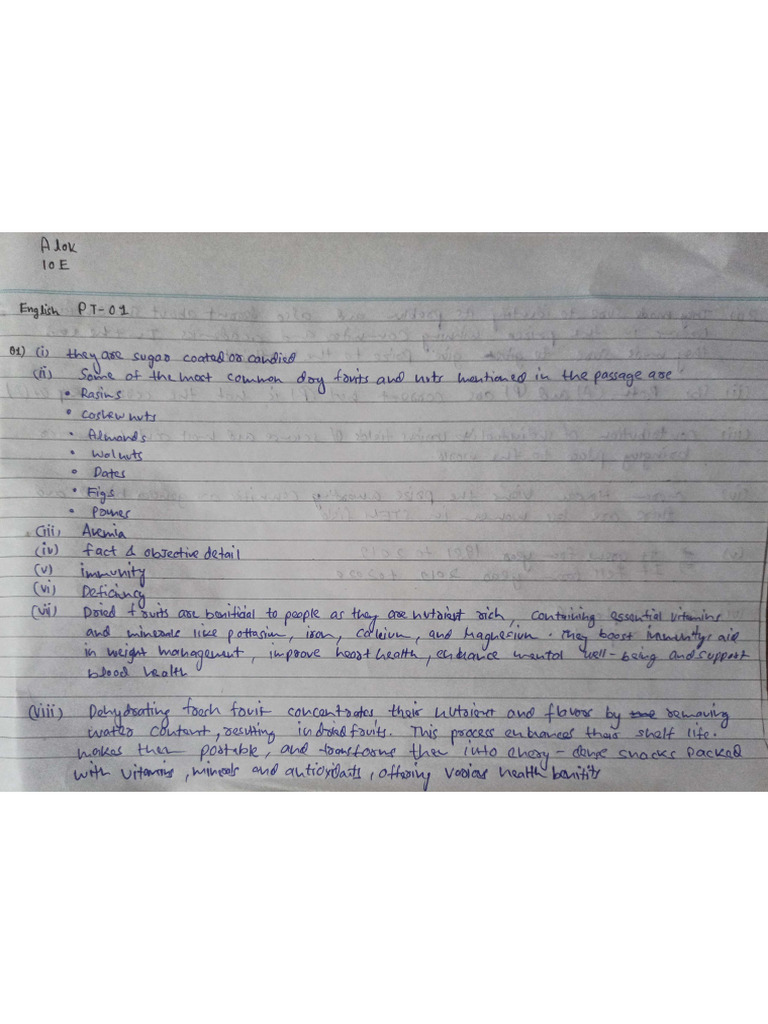 Alok
10 E
English PT-01
01) (i) they are sugar coated or candied
(ii) Some of the most common dry fruits and nuts mentioned in the passage are
• Rasins
• Cashew nuts
• Almonds
• Walnuts
• Dates
• Figs
• Pounes
(iii) Anemia
(iv) fact & objective detail
(v) immunity
(vi) Deficiency
(vii) Dried fruits are benificial to people as they are nutrient rich, containing essential vitamins
and minerals like pottasium, iron, calcium, and Magnesium. they boost immunity, aid
in weight management, improve heart health, enhance mental well-being and support
blood health
(viii) Dehydrating fresh fruit concentrates their nutrient and flavors by removing
water content, resulting in dried fruits. This process enhances their shelf life.
makes them portable, and transforms them into energy-dense snacks packed
with vitamins, minerals and antioxidants, offering various health benifits